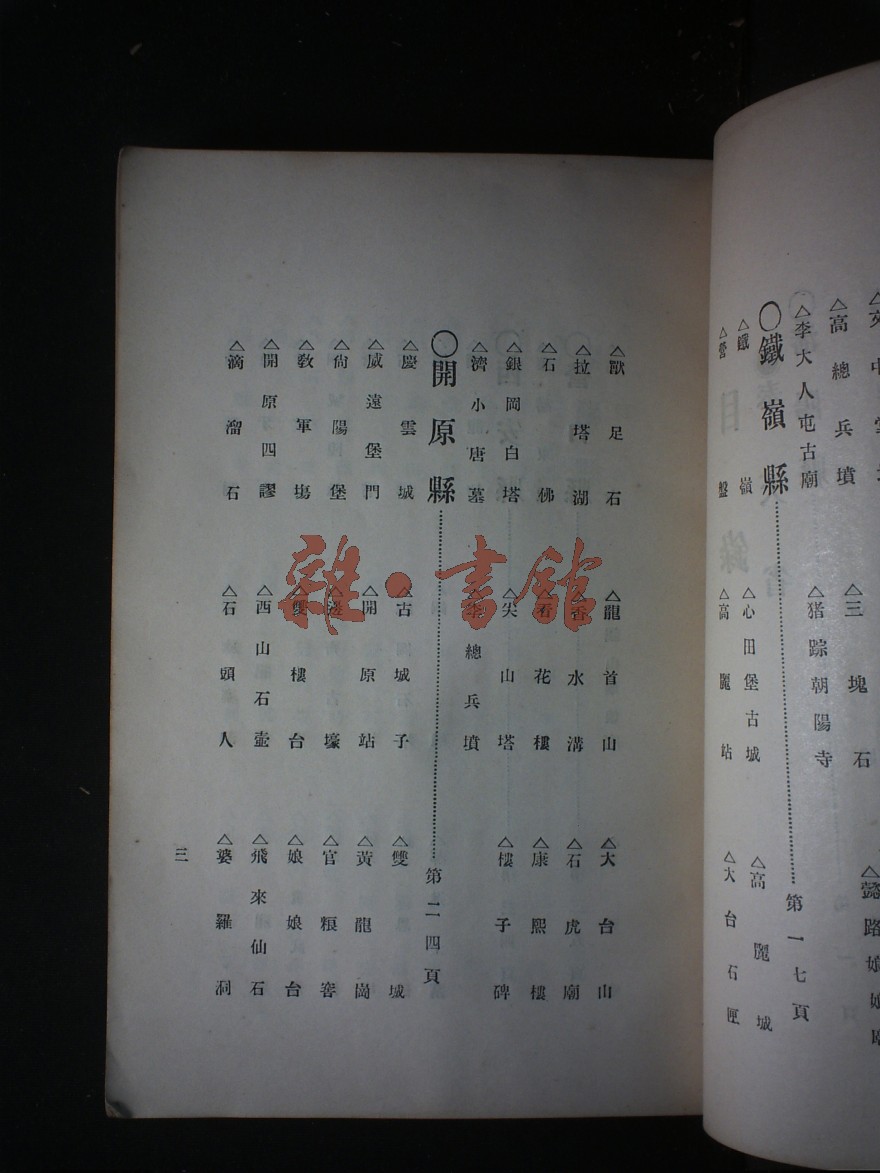 △懿路娘娘
△高總兵墳　△三塊石
△李大人屯古廟　△猪踪朝陽寺
〇鐵嶺縣…………第一七頁
△鐵嶺　△心田堡古城　△高麗城
△營盤　△高麗站　△大台石匣
△獸足石　△龍首山　△大台山
△拉塔湖　△香水溝　△石虎廟
△石佛　△看花樓　△康熙樓
△銀岡白塔　△尖山塔　△樓子碑
△濟小唐墓　△李總兵墳
〇開原縣…………第二四頁
△慶雲城　△古城子　△雙城
△威遠堡門　△開原站　△黃龍崗
△尙陽堡　△邊壕　△官粮窖
△敎軍塲　△雙樓台　△娘娘台
△開原四謬　△西山石壷　△飛來仙石
△滴溜石　△石頭人　△婆羅洞
三
雜·書館